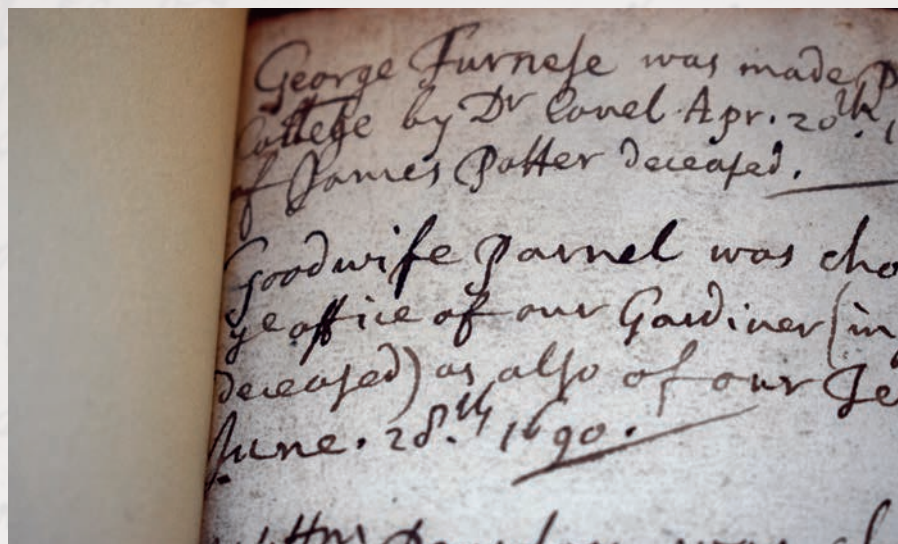 George Furnese was made P
College by Dr Covel Apr. 20th. 1
of James Potter deceased.
Goodwife Parnel was cho
ye office of our Gardiner (in
deceased) as also of our Je
June. 28.th 1690.
was